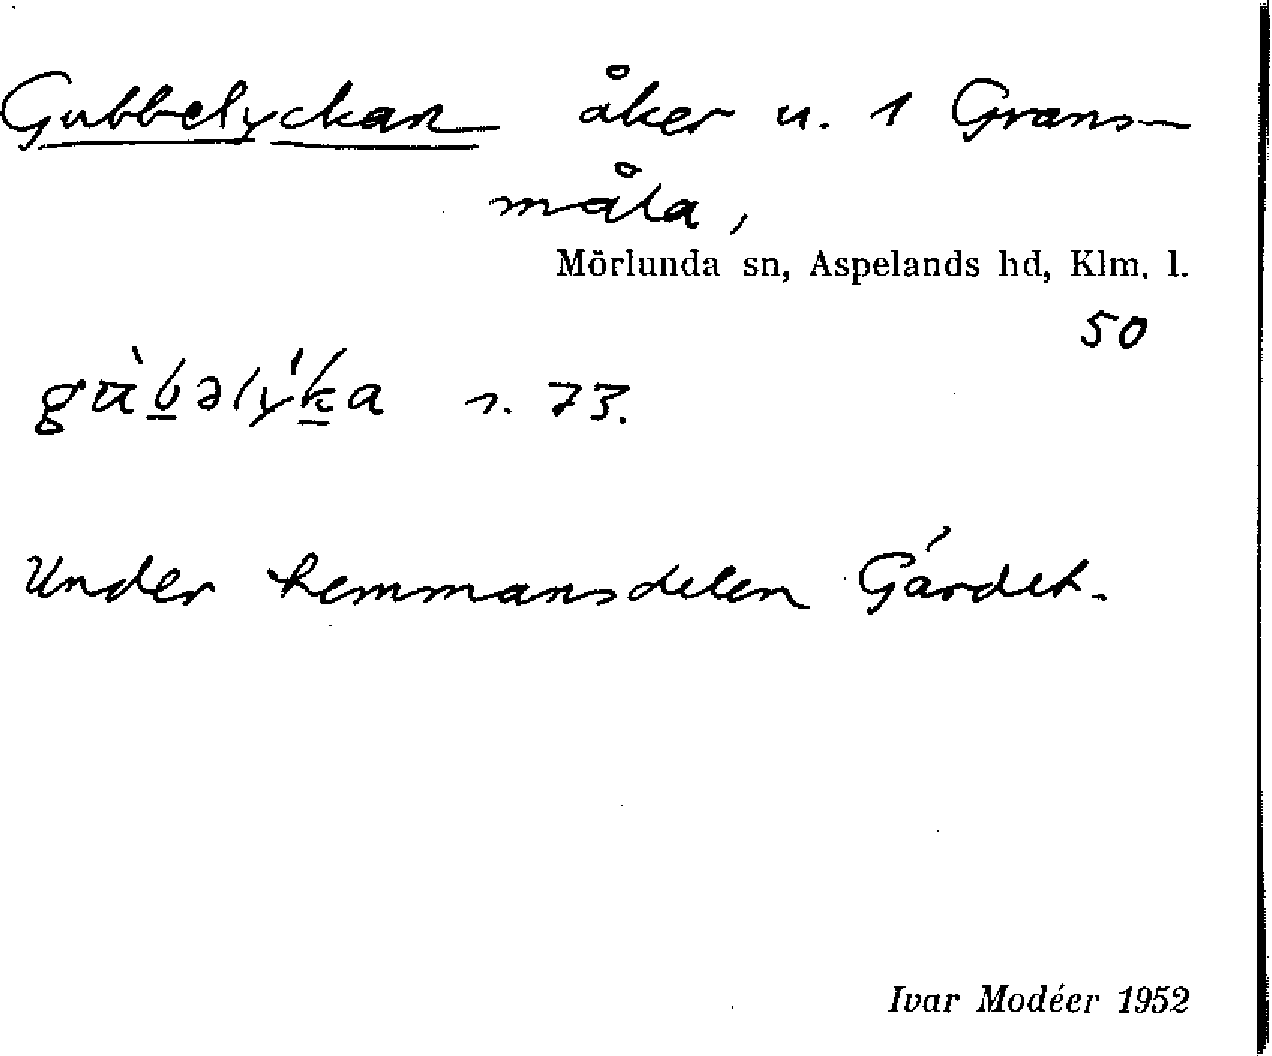 Gubbelyckan åker u. 1 Grans-
måla,
Mörlunda sn, Aspelands hd, Klm. l.
50
gu̇̀b̲əlý́k̲a s. 73.
Under hemmansdelen Gärdet.
Ivar Modéer 1952